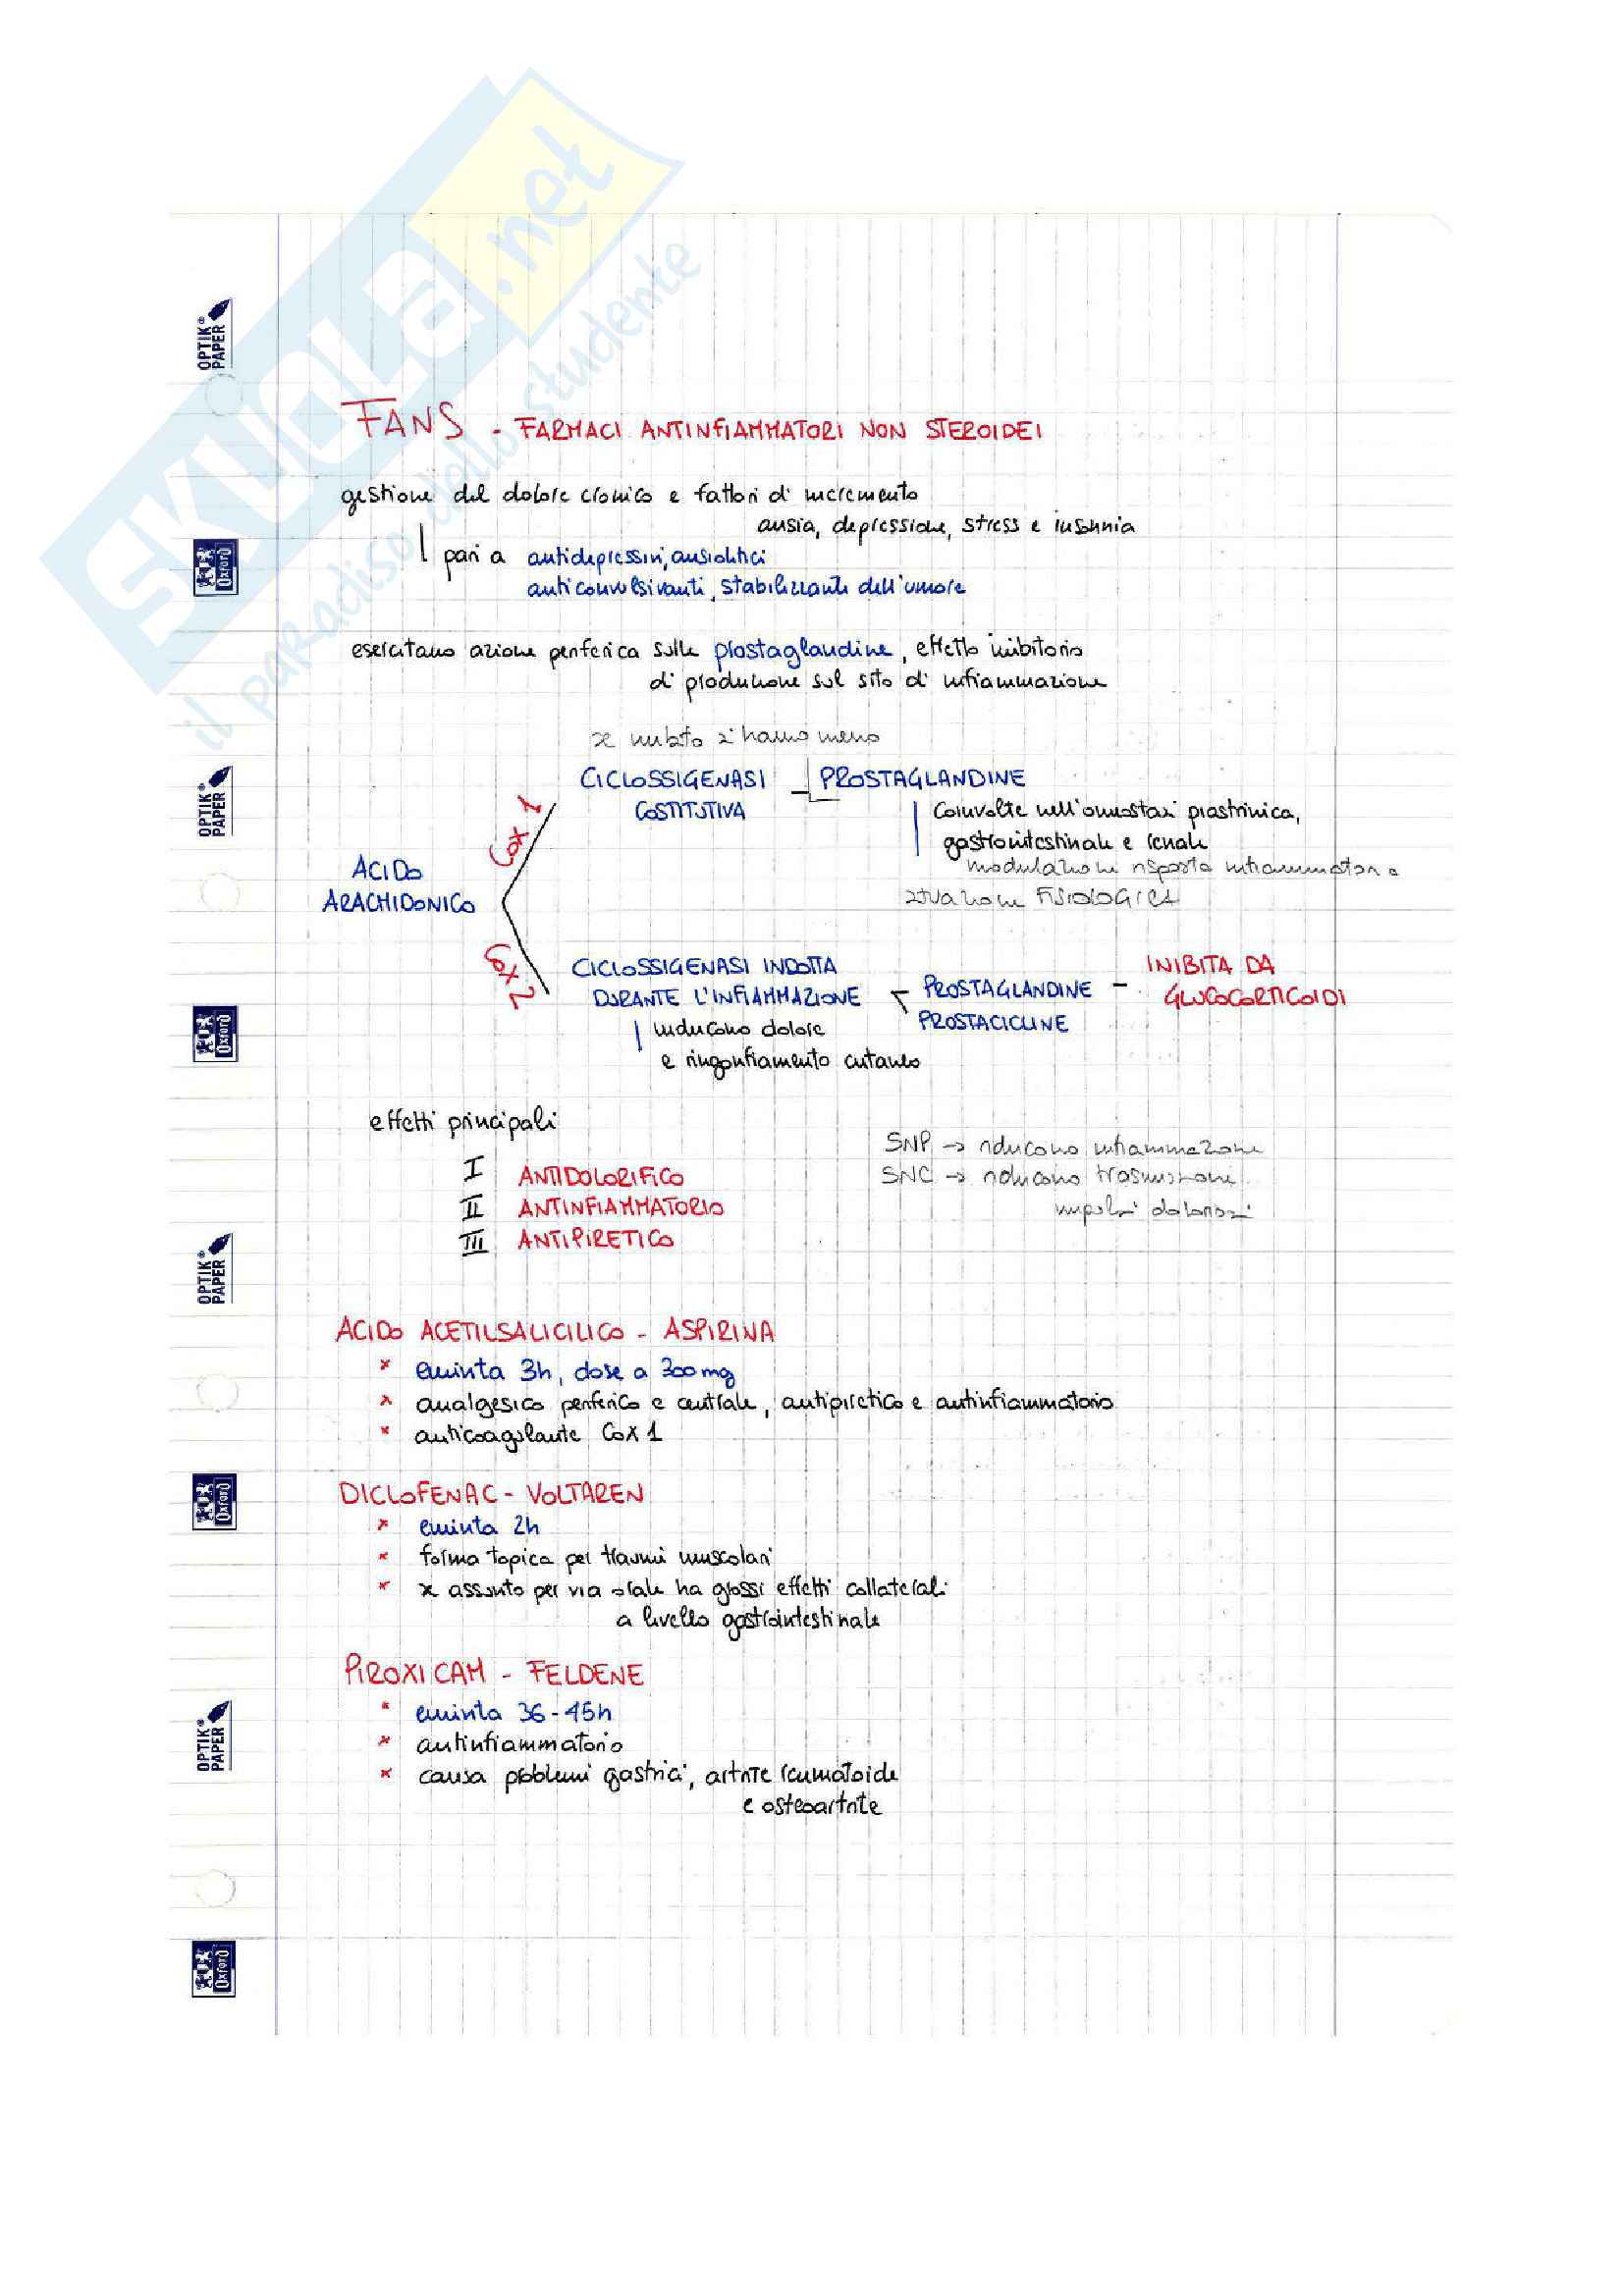 SKUOLA.net
il paradiso dello studente
OPTIK® PAPER
Oxford
OPTIK® PAPER
Oxford
OPTIK® PAPER
Oxford
OPTIK® PAPER
Oxford
FANS - FARMACI ANTINFIAMMATORI NON STEROIDEI
gestione del dolore cronico e fattori di incremento
ansia, depressione, stress e insonnia
pari a antidepressivi, ansiolitici
anticonvulsivanti, stabilizzante dell'umore
esercitano azione periferica sulle prostaglandine, effetto inibitorio
di produzione sul sito di infiammazione
se inibito si hanno meno
CICLOSSIGENASI - PROSTAGLANDINE
COSTITUTIVA
Cox 1
coinvolte nell'omeostasi piastrinica,
gastrointestinale e renale
modulazione risposta infiammatoria
situazione FISIOLOGICA
ACIDO
ARACHIDONICO
Cox 2
CICLOSSIGENASI INDOTTA
DURANTE L'INFIAMMAZIONE
PROSTAGLANDINE -
PROSTACICLINE
INIBITA DA
GLUCOCORTICOIDI
inducono dolore
e ringonfiamento cutaneo
effetti principali
I ANTIDOLORIFICO
II ANTINFIAMMATORIO
III ANTIPIRETICO
SNP → riducono infiammazione
SNC → riducono trasmissione
impulsi dolorosi
ACIDO ACETILSALICILICO - ASPIRINA
× emivita 3h, dose a 300mg
× analgesico periferico e centrale, antipiretico e antinfiammatorio
× anticoagulante Cox 1
DICLOFENAC - VOLTAREN
× emivita 2h
× forma topica per traumi muscolari
× se assunto per via orale ha grossi effetti collaterali
a livello gastrointestinale
PIROXICAM - FELDENE
× emivita 36-45h
× antinfiammatorio
× causa problemi gastrici, artrite reumatoide
e osteoartrite